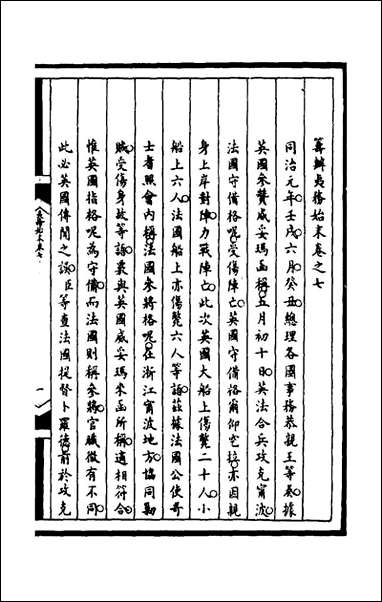 籌辦夷務始末卷之七
同治元年壬戌六月癸丑總理各國事務恭親王等奏據
英國參贊威妥瑪函稱五月初十日英法合兵攻克甯波
法國守備格呢受傷陣亡英國守備恪爾仰屯接亦因親
身上岸對陣力戰陣亡此次英國大船上傷斃二十人小
船上六人法國船上亦傷斃六人等語茲據法國公使哥
士耆照會內稱法國參將格呢在浙江甯波地方協同勦
賊受傷身故等語覈與英國威妥瑪來函所稱適相符合
惟英國指格呢為守備而法國則稱參將官職微有不同
此必英國傳聞之誤臣等查法國提督卜羅德前於攻克
夷務始末卷七
一